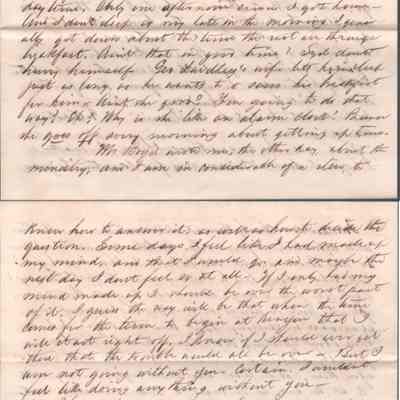 day time. Only one afternoon since I got home
And I don't sleep so very late in the morning. I gener-
ally get down about the time the rest are through
breakfast. Aint that in good time? Syd don't
hurry himself. Geo 's wife lets him sleep
just as long as he wants to & saves his breakfast
for him. Aint she good? I'm going to do that
way? Eh? Why is she like an alarm clock? Because
she goes off every morning about getting up time.
Mr. wrote me, the other day about the
ministry, and I am in considerable of a stew to
know how to answer it; or how to decide the
question. Some days I feel like I had made up
my mind, and that I would go, and maybe the
next day I don't feel so at all. If I only had my
mind made up I would be over the worst part
of it. I guess the way will be that when the time
comes for the term to begin at that I
will start right off. I know if I should ever get
there that the trouble would all be over. But I
am not going without you certain. I wouldnt
feel like doing anything without you